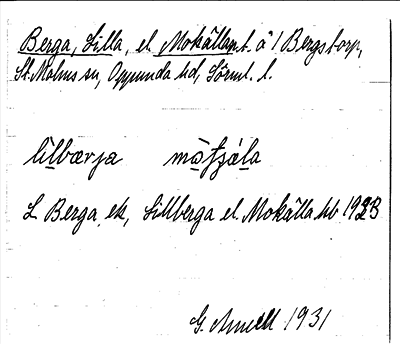 Berga, Lilla, el. Mokällap t. å 1 Bergstorp,
St. Malms sn, Oppunda hd, Sörml. l.
lìlbærja
L Berga, ek, Lillberga el. Mokälla kb 1923
G. Amell 1931